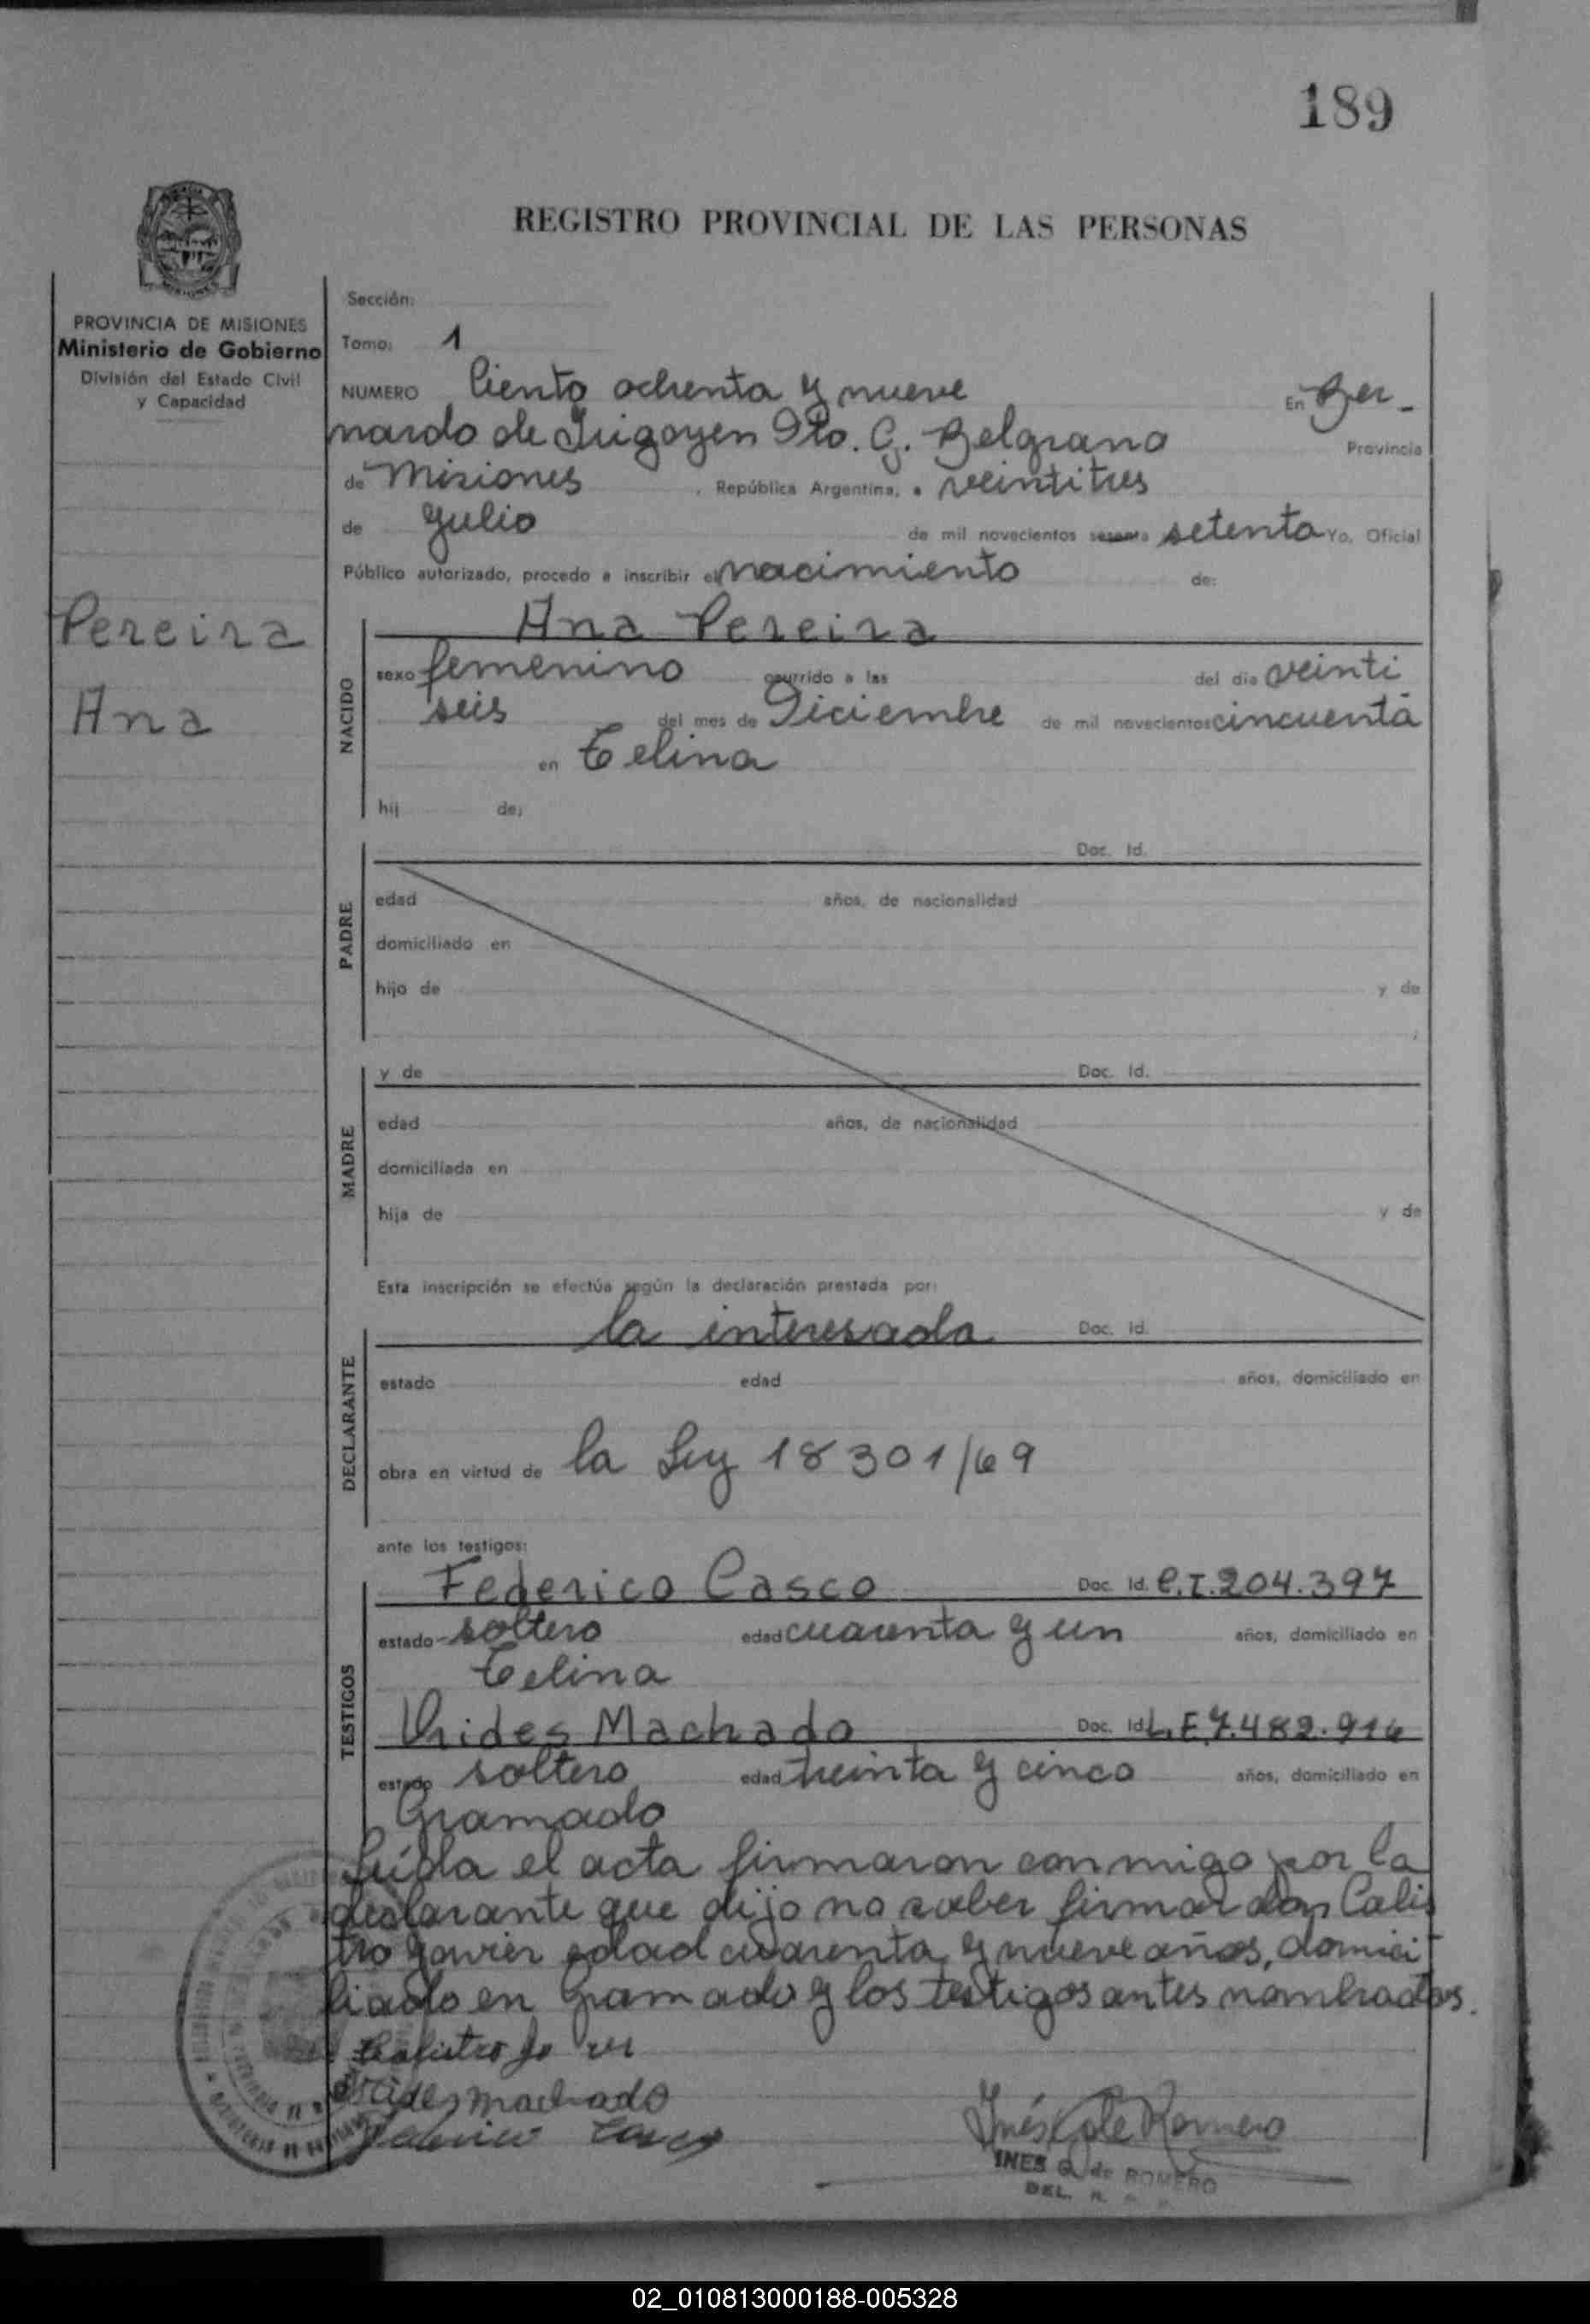 189
REGISTRO PROVINCIAL DE LAS PERSONAS
PROVINCIA DE MISIONES
Ministerio de Gobierno
División del Estado Civil
y Capacidad
Pereira
Ana
Sección:
Tomo: 1
NUMERO Ciento ochenta y nueve En Ber-
nardo de Irigoyen Dto. G. Belgrano Provincia
de Misiones, República Argentina, a veintitres
de Julio de mil novecientos sesenta setenta Yo, Oficial
Público autorizado, procedo a inscribir el nacimiento de:
NACIDO
Ana Pereira
sexo femenino ocurrido a las del día veinti
seis del mes de Diciembre de mil novecientos cincuenta
en Celina
hij de:
PADRE
Doc. Id.
edad años, de nacionalidad
domiciliado en
hijo de y de
MADRE
y de Doc. Id.
edad años, de nacionalidad
domiciliada en
hija de y de
Esta inscripción se efectúa según la declaración prestada por:
DECLARANTE
la interesada Doc. Id.
estado edad años, domiciliado en
obra en virtud de la Ley 18301/69
ante los testigos:
TESTIGOS
Federico Casco Doc. Id. C.I. 204.397
estado soltero edad cuarenta y un años, domiciliado en
Celina
Machado Doc. Id. L.E 7.482.916
estado soltero edad treinta y cinco años, domiciliado en
Gramado
Leída el acta firmaron conmigo por la
declarante que dijo no saber firmar don Calis
tro Javier edad cuarenta y nueve años, domici
liado en Gramado y los testigos antes nombrados.
machado
Inés de Romero
INES G. de ROMERO
DEL. R.
02_010813000188-005328